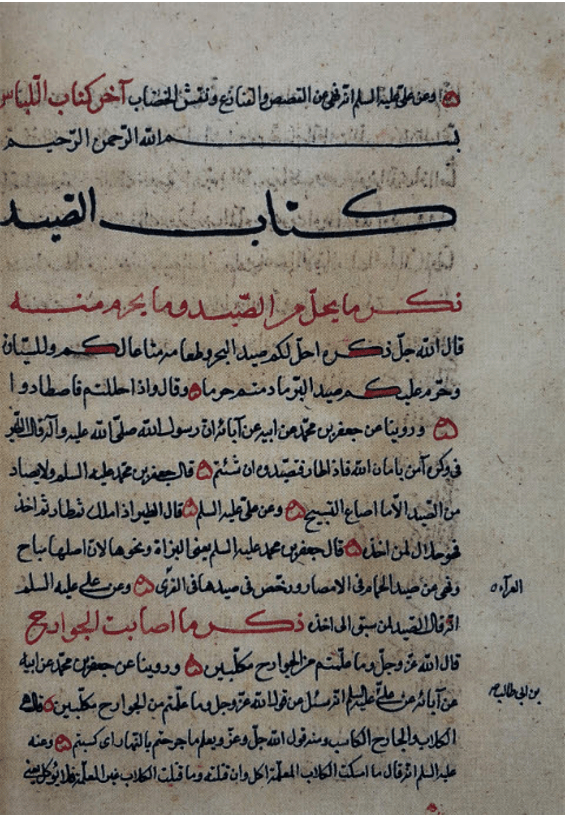 وعن علي عليه السلم انه نهى عن القصص والقنازع ونقش الخضاب آخر كتاب اللباس
بسم الله الرحمن الرحيم
كتاب الصيد
ذكر ما يحل من الصيد وما يحرم منه
قال الله جل ذكره احل لكم صيد البحر وطعامه متاعا لكم وللسيارة
وحرم عليكم صيد البر ما دمتم حرما وقال واذا حللتم فاصطادوا
وروينا عن جعفر بن محمد عن ابيه عن آبائه ان رسول الله صلى الله عليه وآله قال الطير
في وكره آمن بامان الله فاذا طار فتصيدوه ان شئتم قال جعفر بن محمد عليه السلم ولا يصاد
من الصيد الا ما اضاع التسبيح وعن علي عليه السلم قال الطير اذا ملك ثم طار ثم اخذ
فهو حلال لمن اخذه قال جعفر بن محمد عليه السلم يعني البزاة ونحوها لان اصلها مباح
ونهى عن صيد الحمام في الامصار ورخص في صيدها في القرى وعن علي عليه السلم
انه قال الصيد لمن سبق الى اخذه ذكر ما اصابت الجوارح
قال الله عز وجل وما علمتم من الجوارح مكلبين وروينا عن جعفر بن محمد عن ابيه
عن آبائه عن علي عليه السلم انه سئل عن قول الله عز وجل وما علمتم من الجوارح مكلبين قال هي
الكلاب والجارح الكاسب ومنه قول الله جل وعز ويعلم ما جرحتم بالنهار اي كسبتم وعنه
عليه السلم انه قال ما امسكت الكلاب المعلمة اكل وان قتلته وما قتلت الكلاب غير المعلمة فلا يؤكل يعني
بن ابي طالب صع